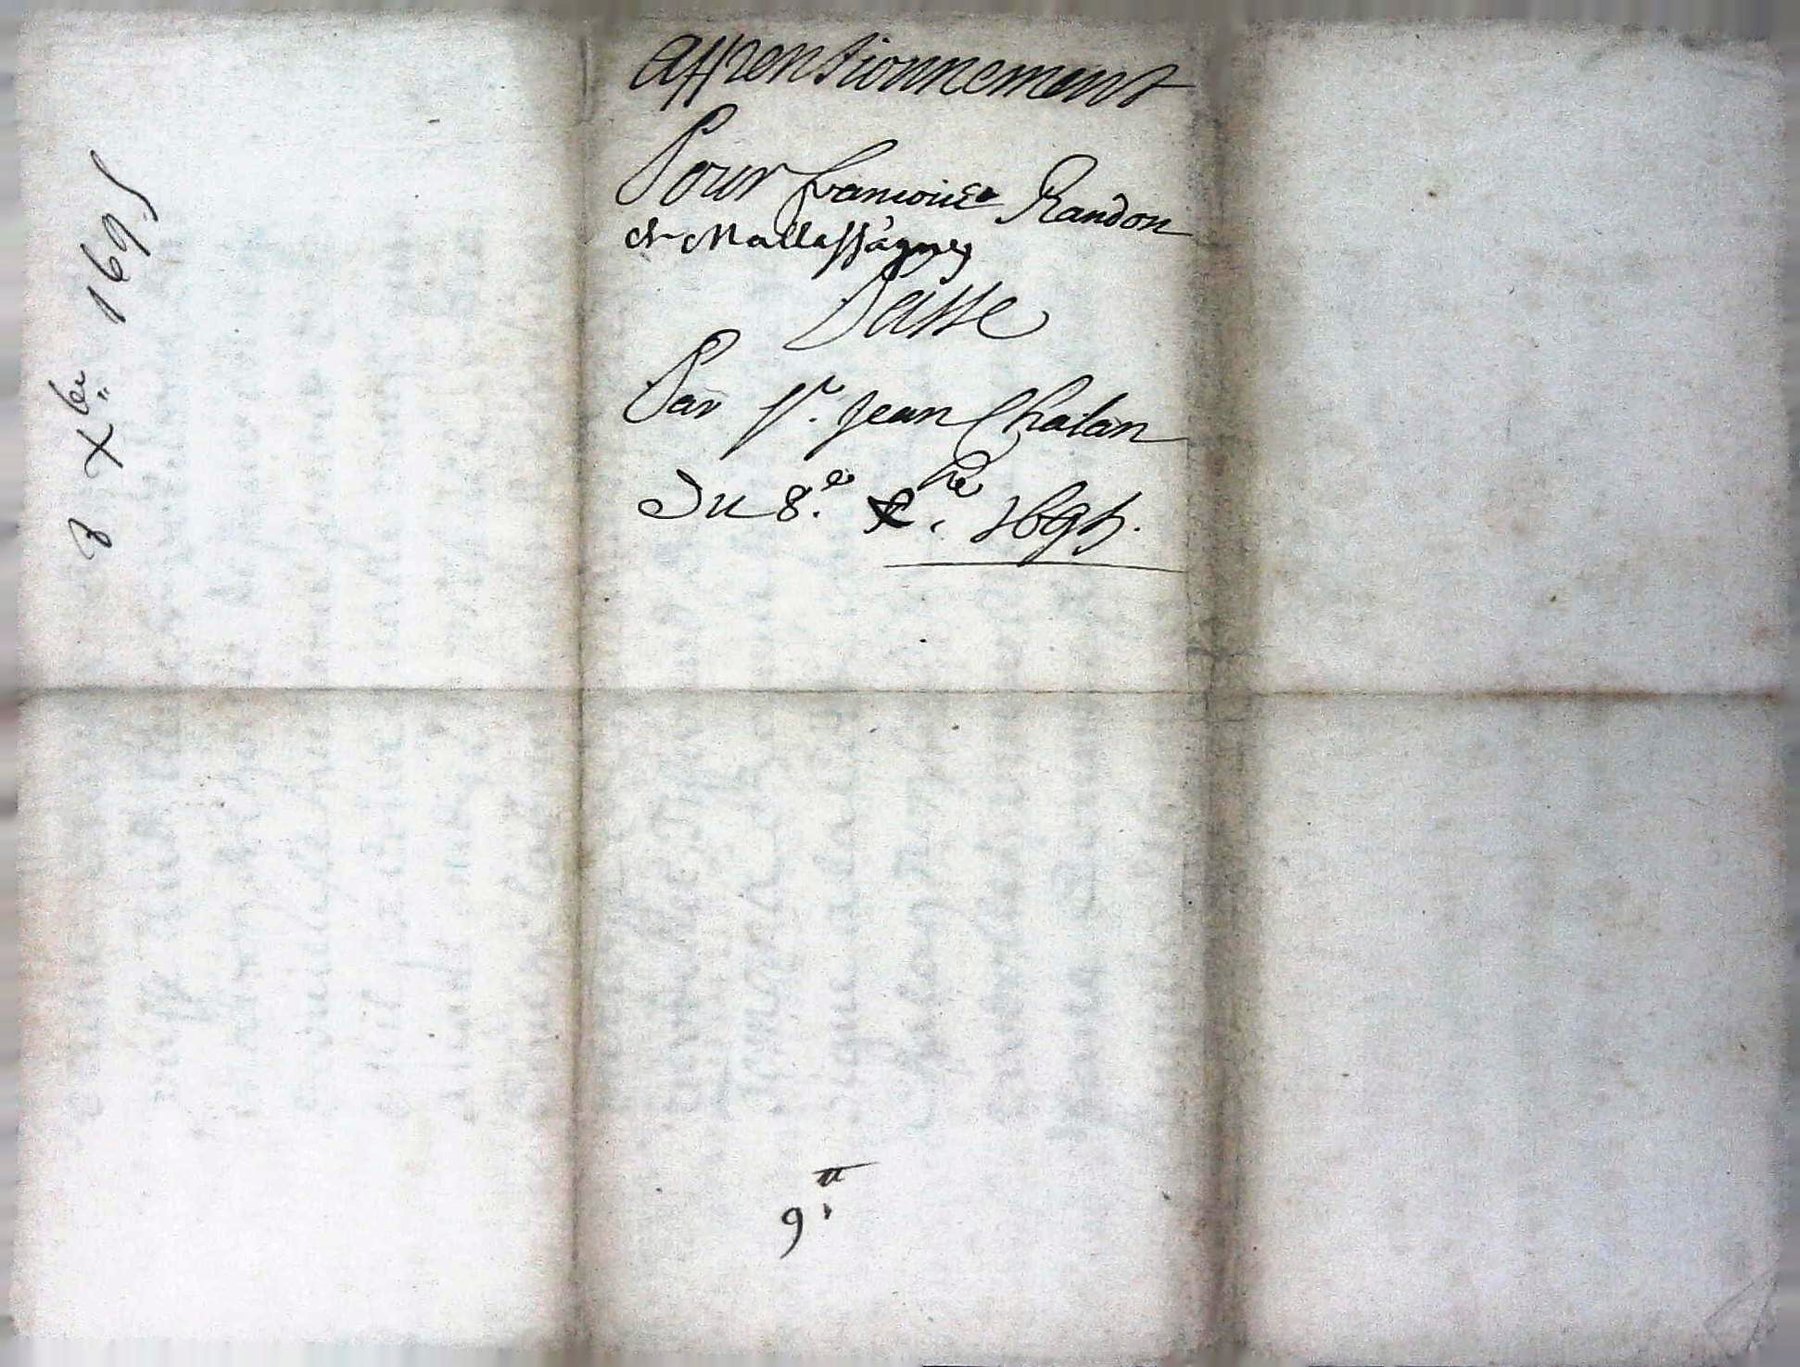 8 Xbre 1695
appensionnement
Pour francoise Randon
de Mallassagnes
Passé
Par Sr. Jean Chalan
Du 8e. Xbre. 1695.
9